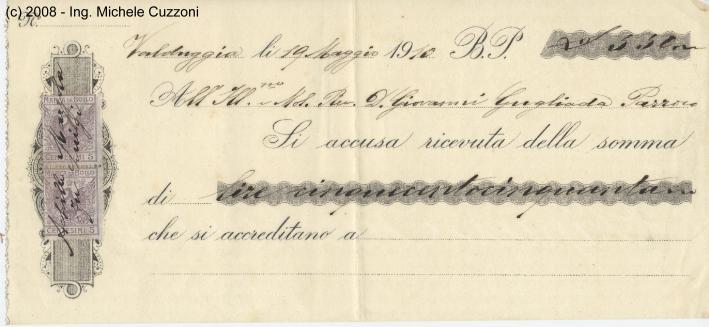 (c) 2008 - Ing. Michele Cuzzoni
N.
Valduggia li 19 Maggio 1910 B.P. 550
All'Ill.mo e Md. Rev. D. Giovanni Gugliada Parroco
Si accusa ricevuta della somma
di lire cinquecentocinquanta
che si accreditano a
MARCA DA BOLLO
CENTESIMI 5
MARCA DA BOLLO
CENTESIMI 5